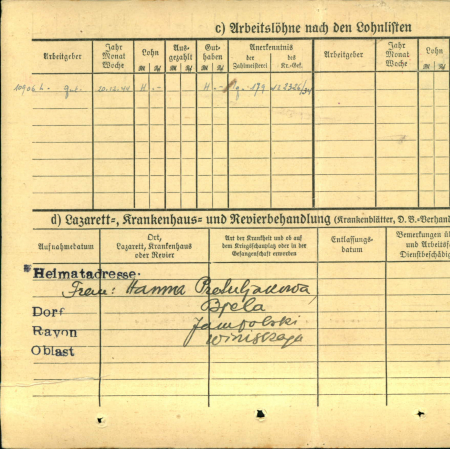 c) Arbeitslöhne nach den Lohnlisten
Arbeitgeber Jahr Monat Woche Lohn ℛℳ ₰ Ausgezahlt ℛℳ ₰ Guthaben ℛℳ ₰ Anerkenntnis der Zahlmeisterei des Kr.-Gef. Arbeitgeber Jahr Monat Woche Lohn ℛℳ ₰
20.12.44 H -.- H -.-
d) Lazarett-, Krankenhaus- und Revierbehandlung (Krankenblätter, D. B.-Verhan
Aufnahmedatum Ort, Lazarett, Krankenhaus oder Revier Art der Krankheit und ob auf dem Kriegsschauplatz oder in der Gefangenschaft erworben Entlassungsdatum Bemerkungen ü und Arbeitsf Dienstbeschädig
Heimatadresse.
Frau: Hanna
Dorf Bjela
Rayon Jampolski
Oblast Winizkaja